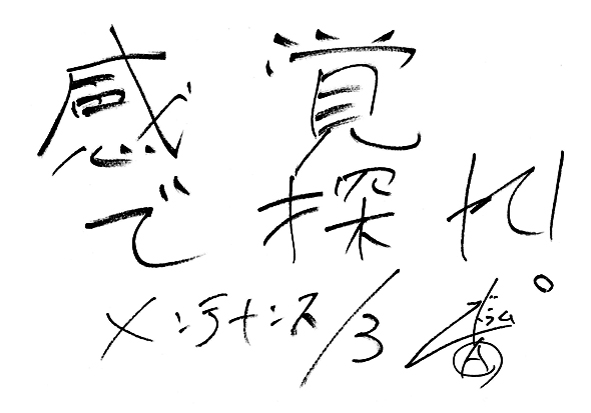 感覚
で探れ。
メンテナンス/3